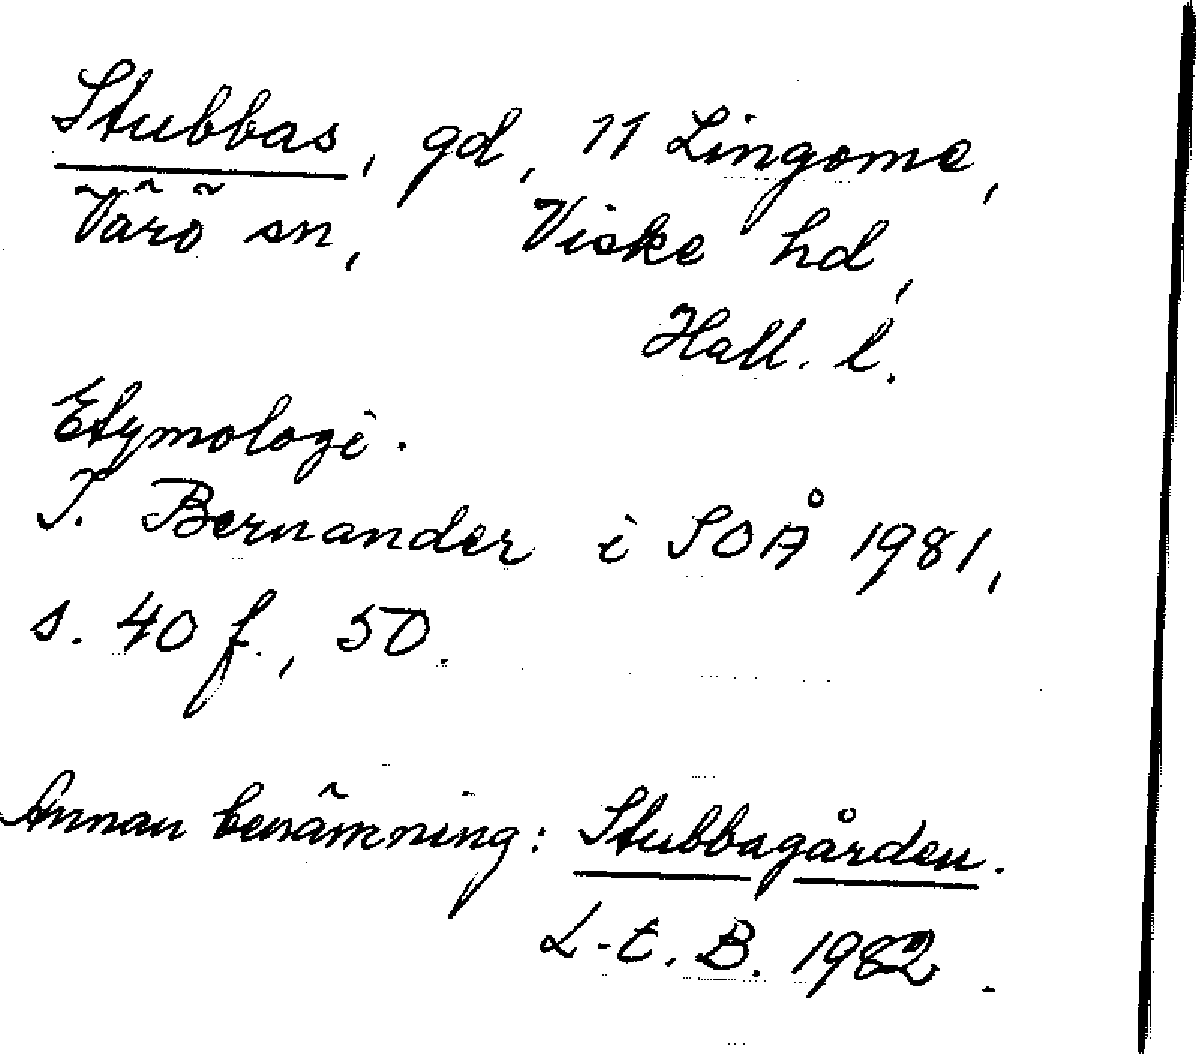 Stubbas, gd, 11 Lingome,
Värö sn, Viske hd,
Hall. l.
Etymologi.
T. Bernander i SOÅ 1981,
s. 40 f., 50.
Annan benämning: Stubbagården.
L-t. B. 1982.